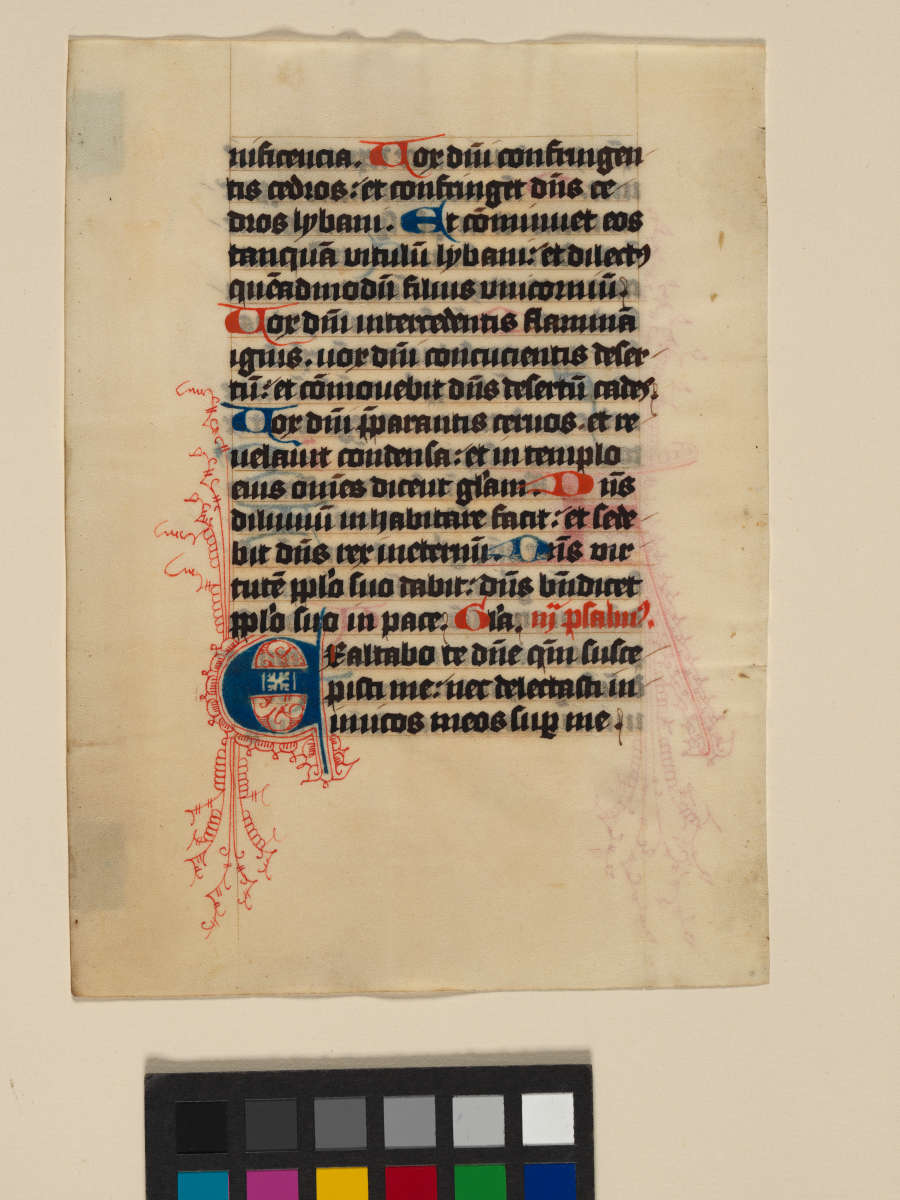 nificencia. Uox dñi confringen
tis cedros: et confringet dñs ce
dros lybani. Et cõminuet eos
tanquã vitulũ lybani: et dilectꝰ
quẽadmodũ filius vnicorniũ.
Uox dñi intercedentis flammã
ignis. uox dñi concucientis deser
tũ: et cõmouebit dñs desertũ cades.
Uox dñi p̃parantis ceruos. et re
uelauit condensa: et in templo
eius om̃es dicent gl̃am. Dñs
diluuiũ inhabitare facit: et sede
bit dñs rex ineternũ. Dñs vir
tutẽ ppl̃o suo dabit: dñs bñdicet
ppl̃o suo in pace. Gl̃a. iij psalmꝰ.
Exaltabo te dñe qm̃ susce
pisti me: nec delectasti in
imicos meos suꝑ me.